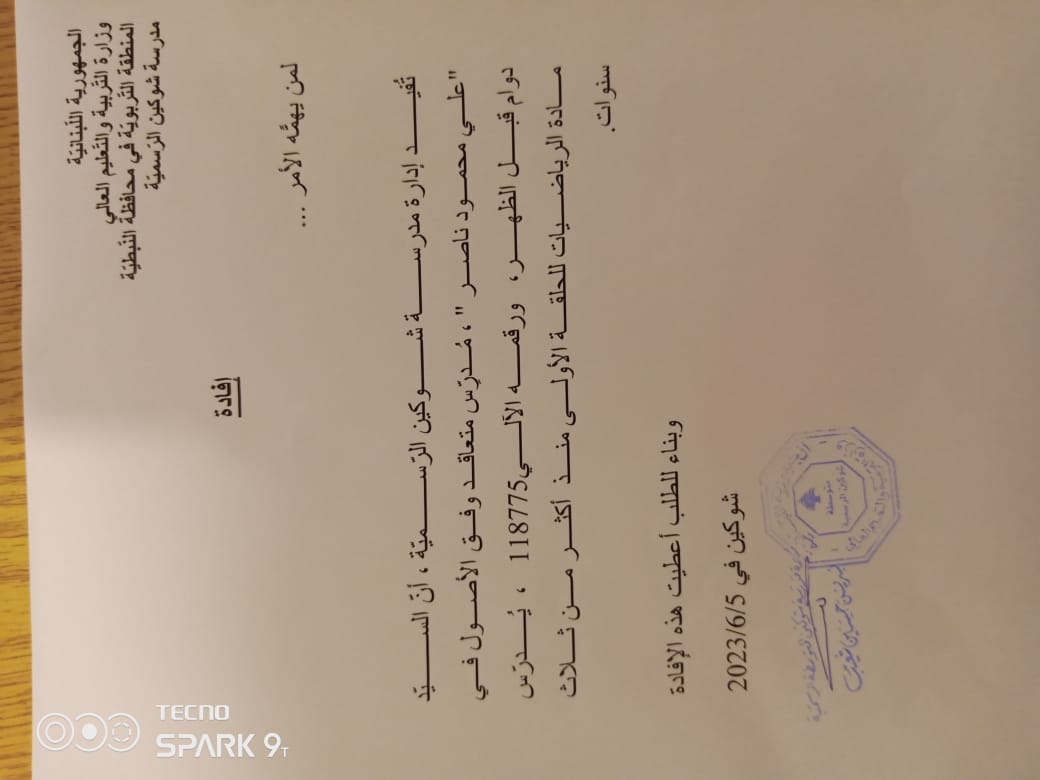 الجمهورية اللبنانيّة
وزارة التربية والتعليم العالي
المنطقة التربويّة في محافظة النبطيّة
مدرسة شوكين الرسميّة
إفادة
لمن يهمّه الأمر ...
تُفيد إدارة مدرسة شوكين الرّسميّة ، أنّ السيّد
"علي محمود ناصر " ، مُدرّس متعاقد وفق الأصول في
دوام قبل الظهر ، ورقمه الآلي118775 ، يُدرّس
مادة الرياضيات للحلقة الأولى منذ أكثر من ثلاث
سنوات.
وبناء للطلب أعطيت هذه الإفادة
شوكين في 2023/6/5
متوسطة
شوكين الرسمية
TECNO
SPARK 9T